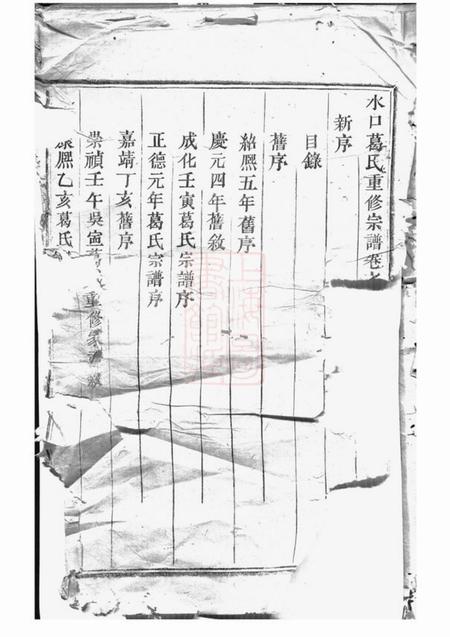 水口葛氏重修宗譜卷
新序
目錄
舊序
紹熙五年舊序
慶元四年舊敘
成化壬寅葛氏宗譜序
正德元年葛氏宗譜序
嘉靖丁亥舊序
崇禎壬午吳 重修家
康熙乙亥葛氏